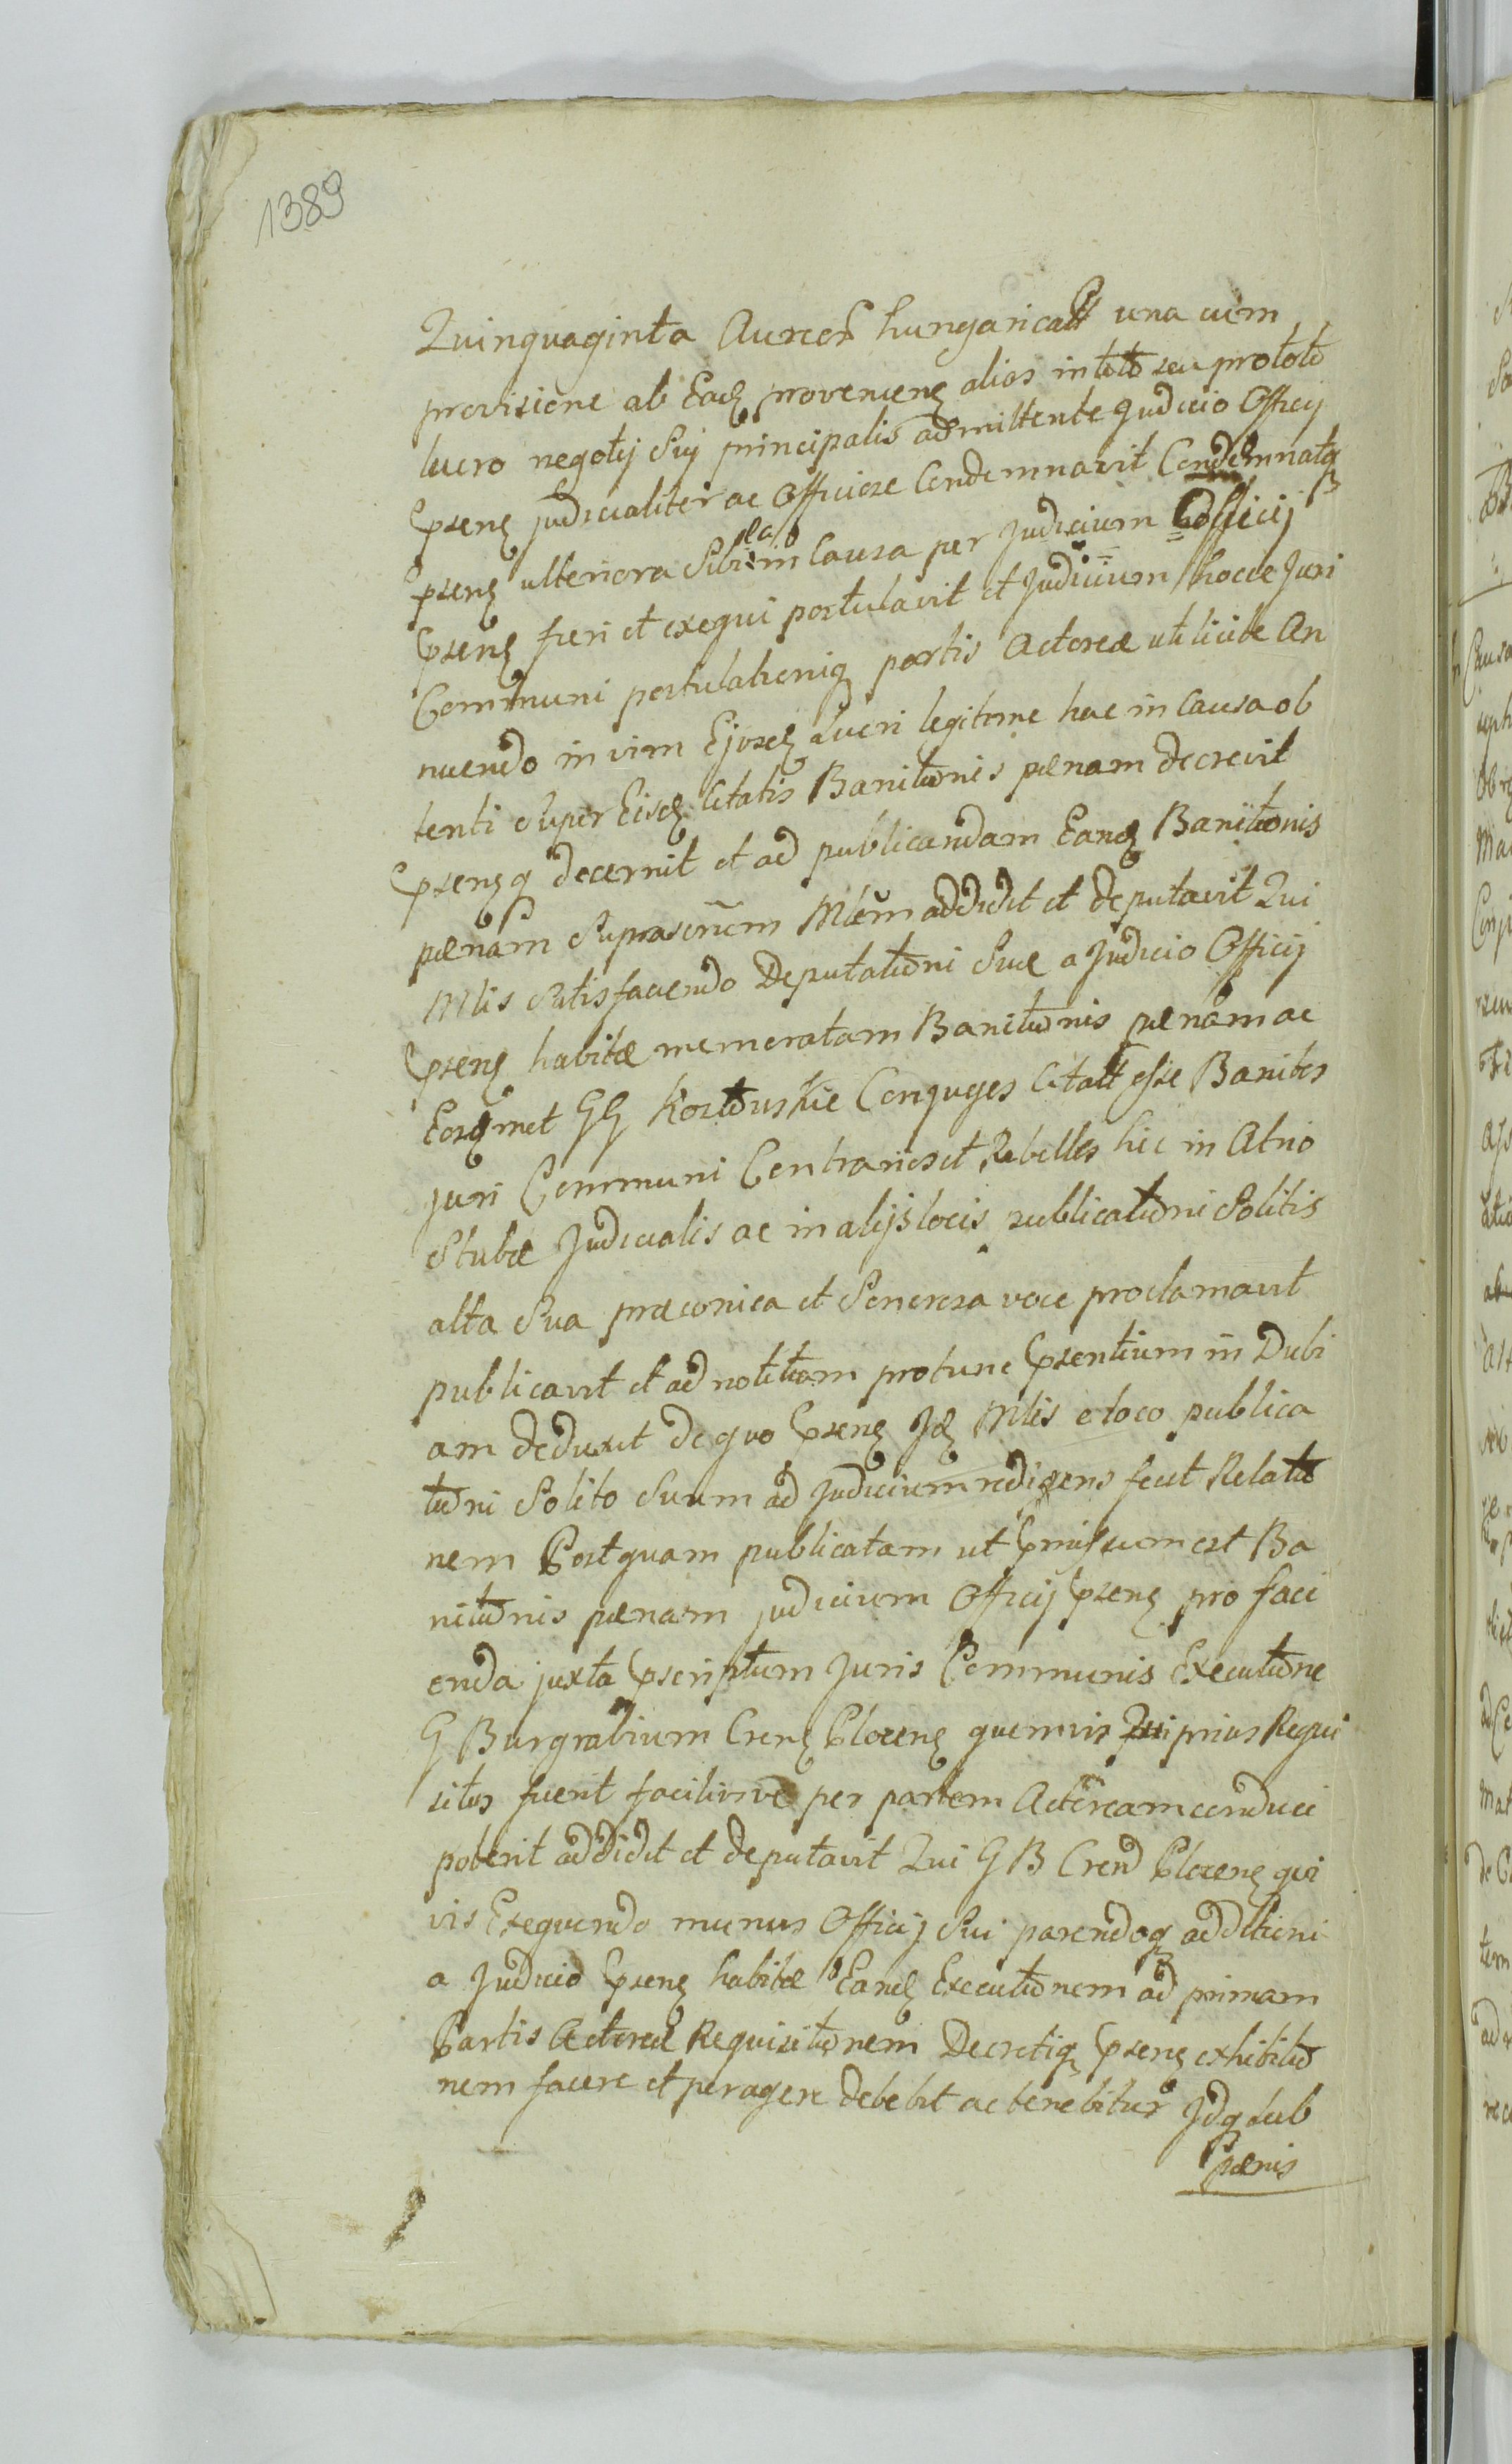 1389
Quinquaginta Aureor Hungaricall una cum
provisione ab Eadz provenienz alias in toto seu prototo
lucro negotij Sui principalis admittente Judicio Officij
Psenz judicialiter ac Officiose Condemnavit Condemnatq
Psenz ulteriora Sibi in Causa per Judicium Officij
Psenz fieri et exequi postulavit et Judicium hocce Juri
Communi postulationiq partis Actoreæ uti licite An
nuendo in vim Ejusdz Lucri legitime hac in Causa ob
tenti super Eisdz Citatis Banitionis pænam decrevit
Psenzq decernit et ad publicandam Eandz Banitionis
pænam Suprascriptum Mlem addidit et deputavit Qui
Mlis Satisfaciendo Deputationi Suæ a Judicio Officij
Psenz habitæ memoratam Banitionis pænam ac
Eosdmet GG Conjuges Citatt esse Banitos
Juri Communi Contrarios et Rebelles hic in Atrio
Stubæ Judicialis ac in alijs locis publicationi Solitis
alta Sua præconica et Sonorosa voce proclamavit
publicavit et ad notitiam protunc Psentium in Dubi
am deduxit de quo Psenz Jdz Mlis e loco publica
tioni Solito Suum ad Judicium rediens fecit Relatio
nem Postquam publicatam ut Pmissum est Ba
nitionis pænam judicium Officij Psenz pro faci
enda juxta Pscriptum Juris Communis Executione
G Burgrabium Crenz Plocenz quemvis Qui prius Requi
situs fuerit faciliusve per partem Actoream conduci
poterit addidit et deputavit Qui G B Crenz Plocenz qui
vis Exequendo munus Officij Sui parendoq additioni
a Judicio Psenz habitæ Eandz Executionem ad primam
Partis Actoreæ Requisitionem Decretiq Psenz exhibitio
nem facere et peragere debebit ac tenebitur Jdq sub
Pænis